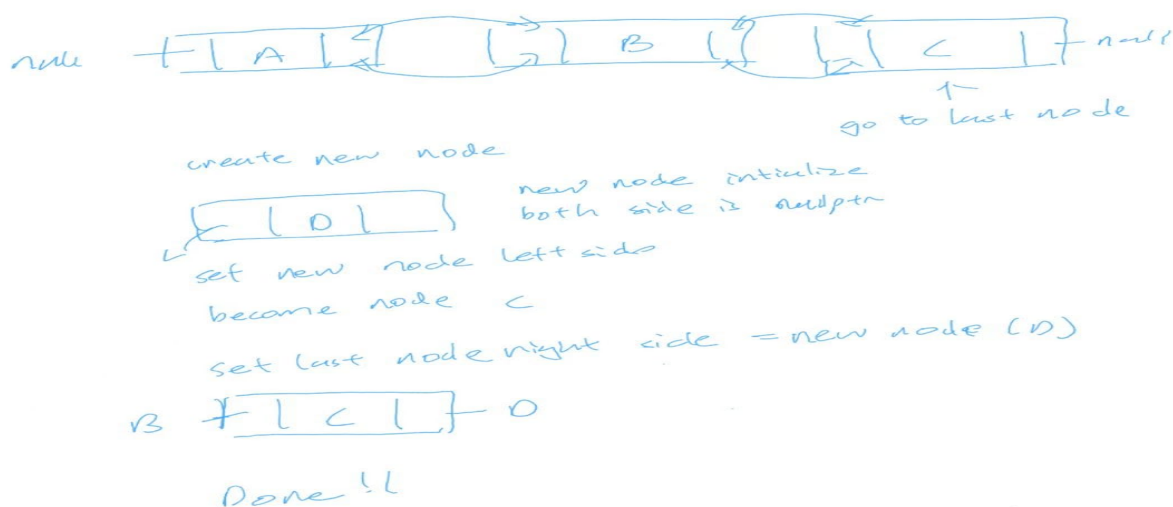 null A B C null
go to last node
create new node
D
new node intialize
both side is nullptr
set new node left side
become node C
set last node right side = new node (D)
B C D
Done!!